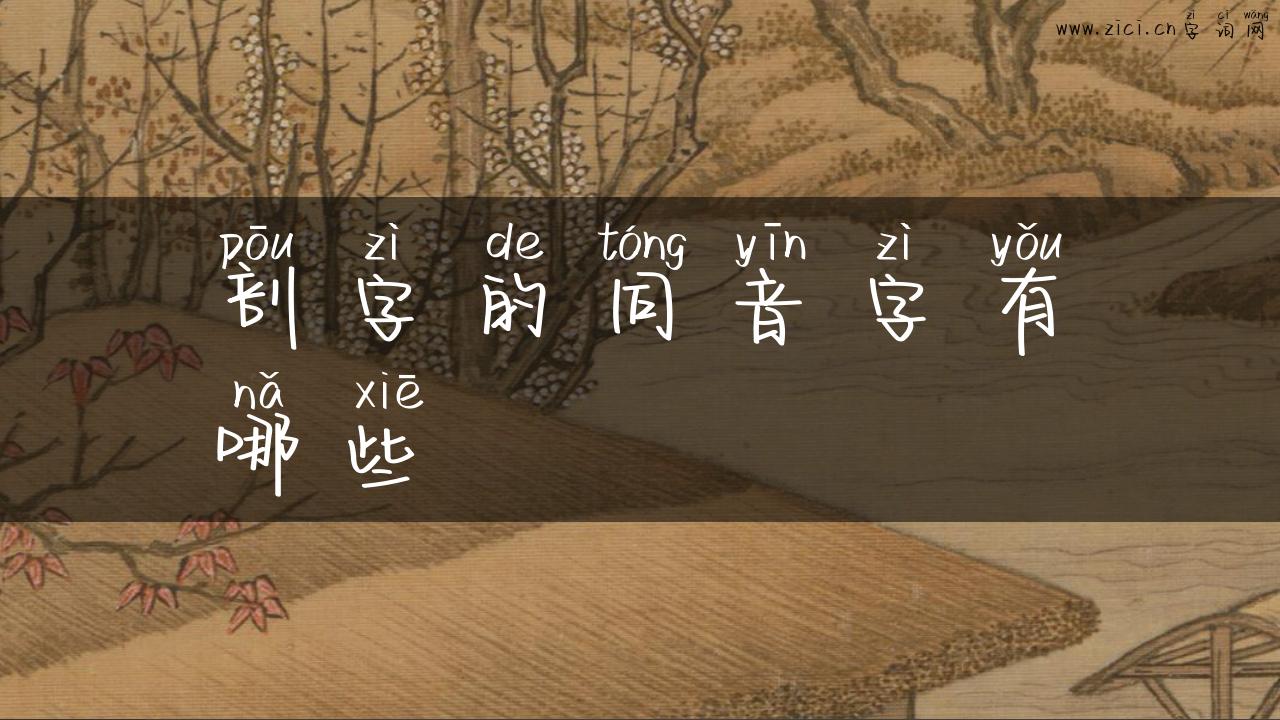 zì cí wǎng
www.zici.cn 字 词 网
pōu zì de tóng yīn zì yǒu
剖 字 的 同 音 字 有
nǎ xiē
哪 些